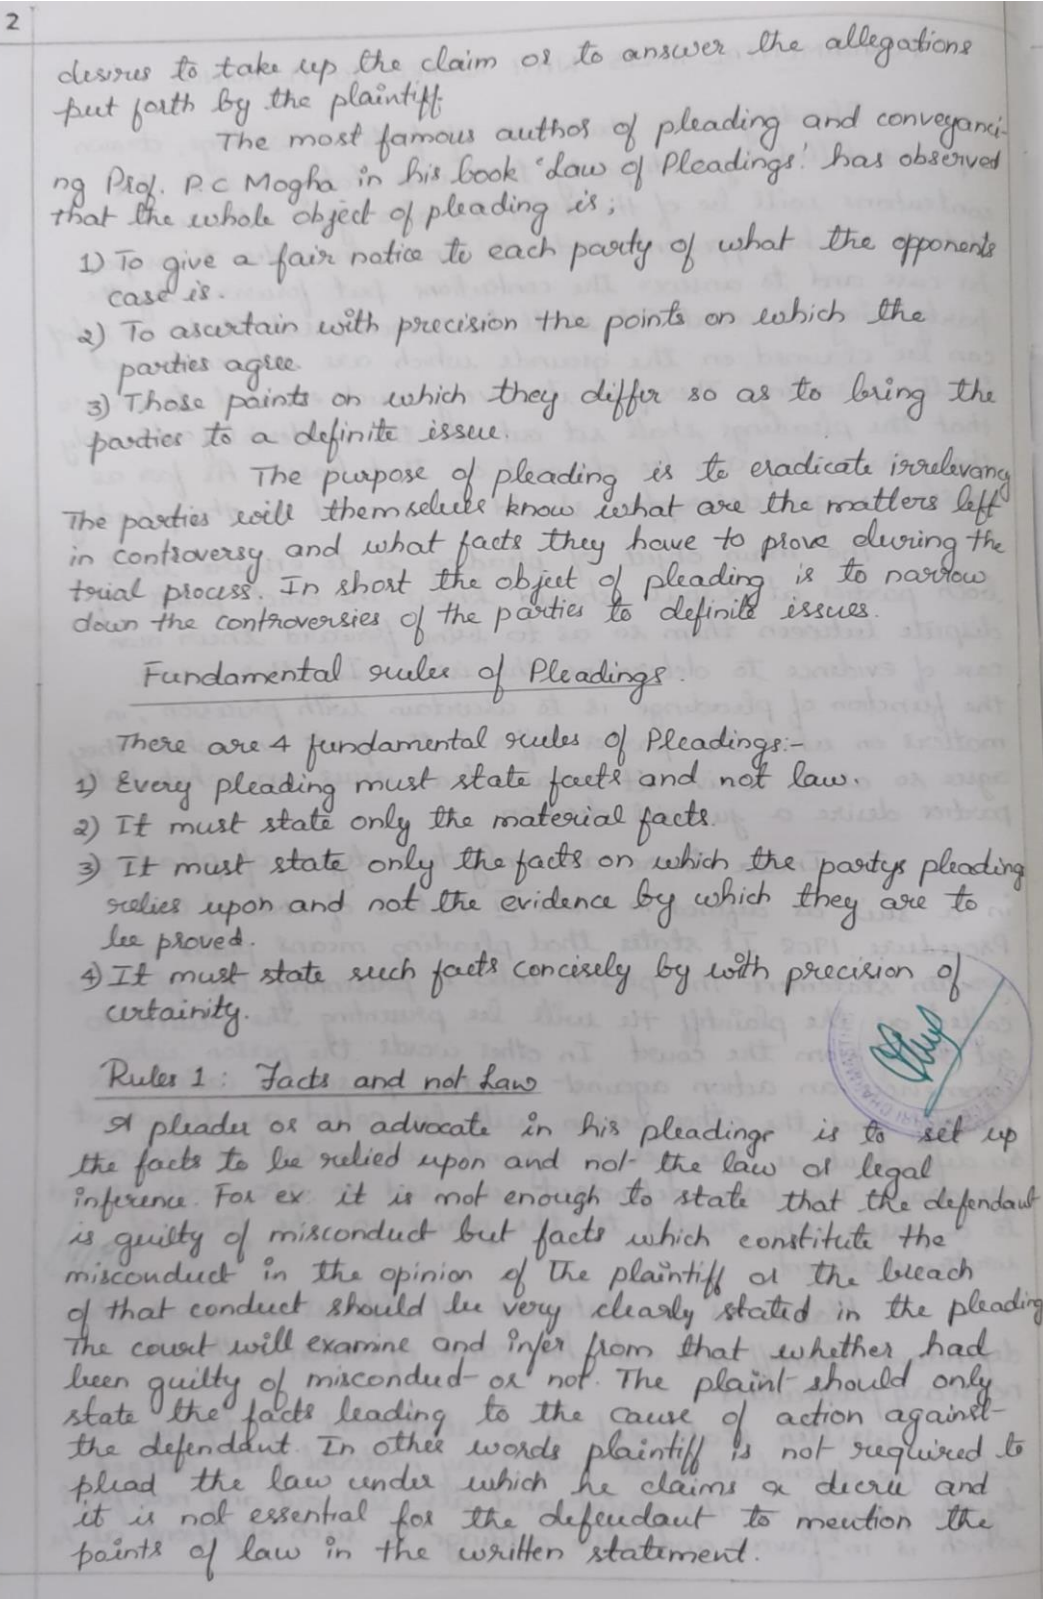 2
desires to take up the claim or to answer the allegations
put forth by the plaintiff.
The most famous author of pleading and conveyanci-
ng Prof. P.C Mogha in his book 'Law of Pleadings' has observed
that the whole object of pleading is;
1) To give a fair notice to each party of what the opponents
case is.
2) To ascertain with precision the points on which the
parties agree.
3) Those points on which they differ so as to bring the
parties to a definite issue.
The purpose of pleading is to eradicate irrelevancy
The parties will themselves know what are the matters left
in controversy and what facts they have to prove during the
trial process. In short the object of pleading is to narrow
down the controversies of the parties to definite issues.
Fundamental rules of Pleadings.
There are 4 fundamental rules of Pleadings:-
1) Every pleading must state facts and not law.
2) It must state only the material facts.
3) It must state only the facts on which the partys pleading
relies upon and not the evidence by which they are to
be proved.
4) It must state such facts concisely by with precision of
certainity.
Rules 1: Facts and not Law
A pleader or an advocate in his pleadings is to set up
the facts to be relied upon and not the law or legal
inference. For ex: it is not enough to state that the defendant
is guilty of misconduct but facts which constitute the
misconduct in the opinion of the plaintiff or the breach
of that conduct should be very clearly stated in the pleading
The court will examine and infer from that whether had
been guilty of misconduct or not. The plaint should only
state the facts leading to the cause of action against
the defendant. In other words plaintiff is not required to
plead the law under which he claims a decree and
it is not essential for the defendant to mention the
points of law in the written statement.